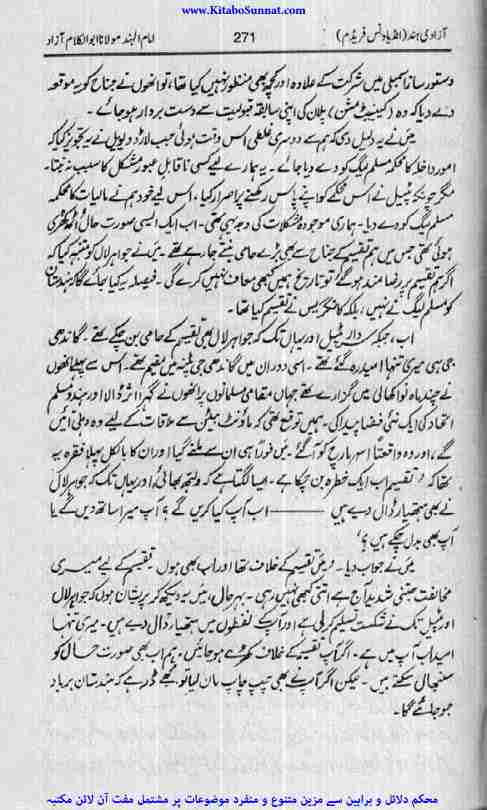 www.KitaboSunnat.com
آزادی ہند (انڈیا ونس فریڈم) 271 امام الہند مولانا ابوالکلام آزاد
دستور ساز اسمبلی میں شرکت کے علاوہ اور کچھ بھی منظور نہیں کیا تھا، تو انھوں نے جناح کو یہ موقعہ
دے دیا کہ وہ (کیبینٹ مشن) پلان کی اپنی سابقہ قبولیت سے دست بردار ہو جائے۔
میں نے یہ دلیل دی کہ ہم سے دوسری غلطی اس وقت ہوئی جب لارڈ ویویل نے یہ تجویز کیا کہ
امور داخلہ کا محکمہ مسلم لیگ کو دے دیا جائے۔ یہ ہمارے لیے کسی ناقابل عبور مشکل کا سبب نہ بنتا۔
مگر چونکہ پٹیل نے اس محکمے کو اپنے پاس رکھنے پر اصرار کیا، اس لیے خود ہم نے مالیات کا محکمہ
مسلم لیگ کو دے دیا۔ ہماری موجودہ مشکلات کی وجہ یہی تھی۔ اب ایک ایسی صورت حال اٹھ کھڑی
ہوئی تھی جس میں ہم تقسیم کے جناح سے بھی بڑے حامی بنتے جا رہے تھے۔ میں نے جواہر لال کو متنبہ کیا کہ
اگر ہم تقسیم پر رضامند ہو گئے تو تاریخ ہمیں کبھی معاف نہیں کرے گی۔ فیصلہ یہ کیا جائے گا کہ ہندستان
کو مسلم لیگ نے نہیں، بلکہ کانگریس نے تقسیم کیا تھا۔
اب، جبکہ سردار پٹیل اور یہاں تک کہ جواہر لال بھی تقسیم کے حامی بن چکے تھے۔ گاندھی
جی ہی میری تنہا امید رہ گئے تھے۔ اسی دوران میں گاندھی جی پٹنہ میں مقیم تھے۔ اس سے پہلے انھوں
نے چند ماہ نواکھالی میں گزارے تھے جہاں مقامی مسلمانوں پر انھوں نے گہرا اثر ڈالا اور ہندو مسلم
اتحاد کی ایک نئی فضا پیدا کی۔ ہمیں توقع تھی کہ ماؤنٹ بیٹن سے ملاقات کے لیے وہ دہلی آئیں
گے، اور وہ واقعتاً ۳۱ مارچ کو آ گئے۔ میں فوراً ہی ان سے ملنے گیا اور ان کا بالکل پہلا فقرہ یہ
تھا کہ ’تقسیم اب ایک خطرہ بن چکا ہے۔ ایسا لگتا ہے کہ ولبھ بھائی، اور یہاں تک کہ جواہر لال
نے بھی ہتھیار ڈال دیے ہیں ——— اب آپ کیا کریں گے؟ آپ میرا ساتھ دیں گے یا
آپ بھی بدل چکے ہیں؟‘
میں نے جواب دیا۔ ’میں تقسیم کے خلاف تھا اور اب بھی ہوں۔ تقسیم کے لیے میری
مخالفت جتنی شدید آج ہے اتنی کبھی نہیں رہی۔ بہرحال، میں یہ دیکھ کر پریشان ہوں کہ جواہر لال
اور پٹیل تک نے شکست تسلیم کر لی ہے اور آپ کے لفظوں میں ہتھیار ڈال دیے ہیں۔ میری تنہا
امید اب آپ میں ہے۔ اگر آپ تقسیم کے خلاف کھڑے ہو جائیں۔ ہم اب بھی صورت حال کو
سنبھال سکتے ہیں۔ لیکن اگر آپ نے بھی چپ چاپ مان لیا تو مجھے ڈر ہے کہ ہندستان برباد
ہو جائے گا۔
محکم دلائل و براہین سے مزین متنوع و منفرد موضوعات پر مشتمل مفت آن لائن مکتبہ